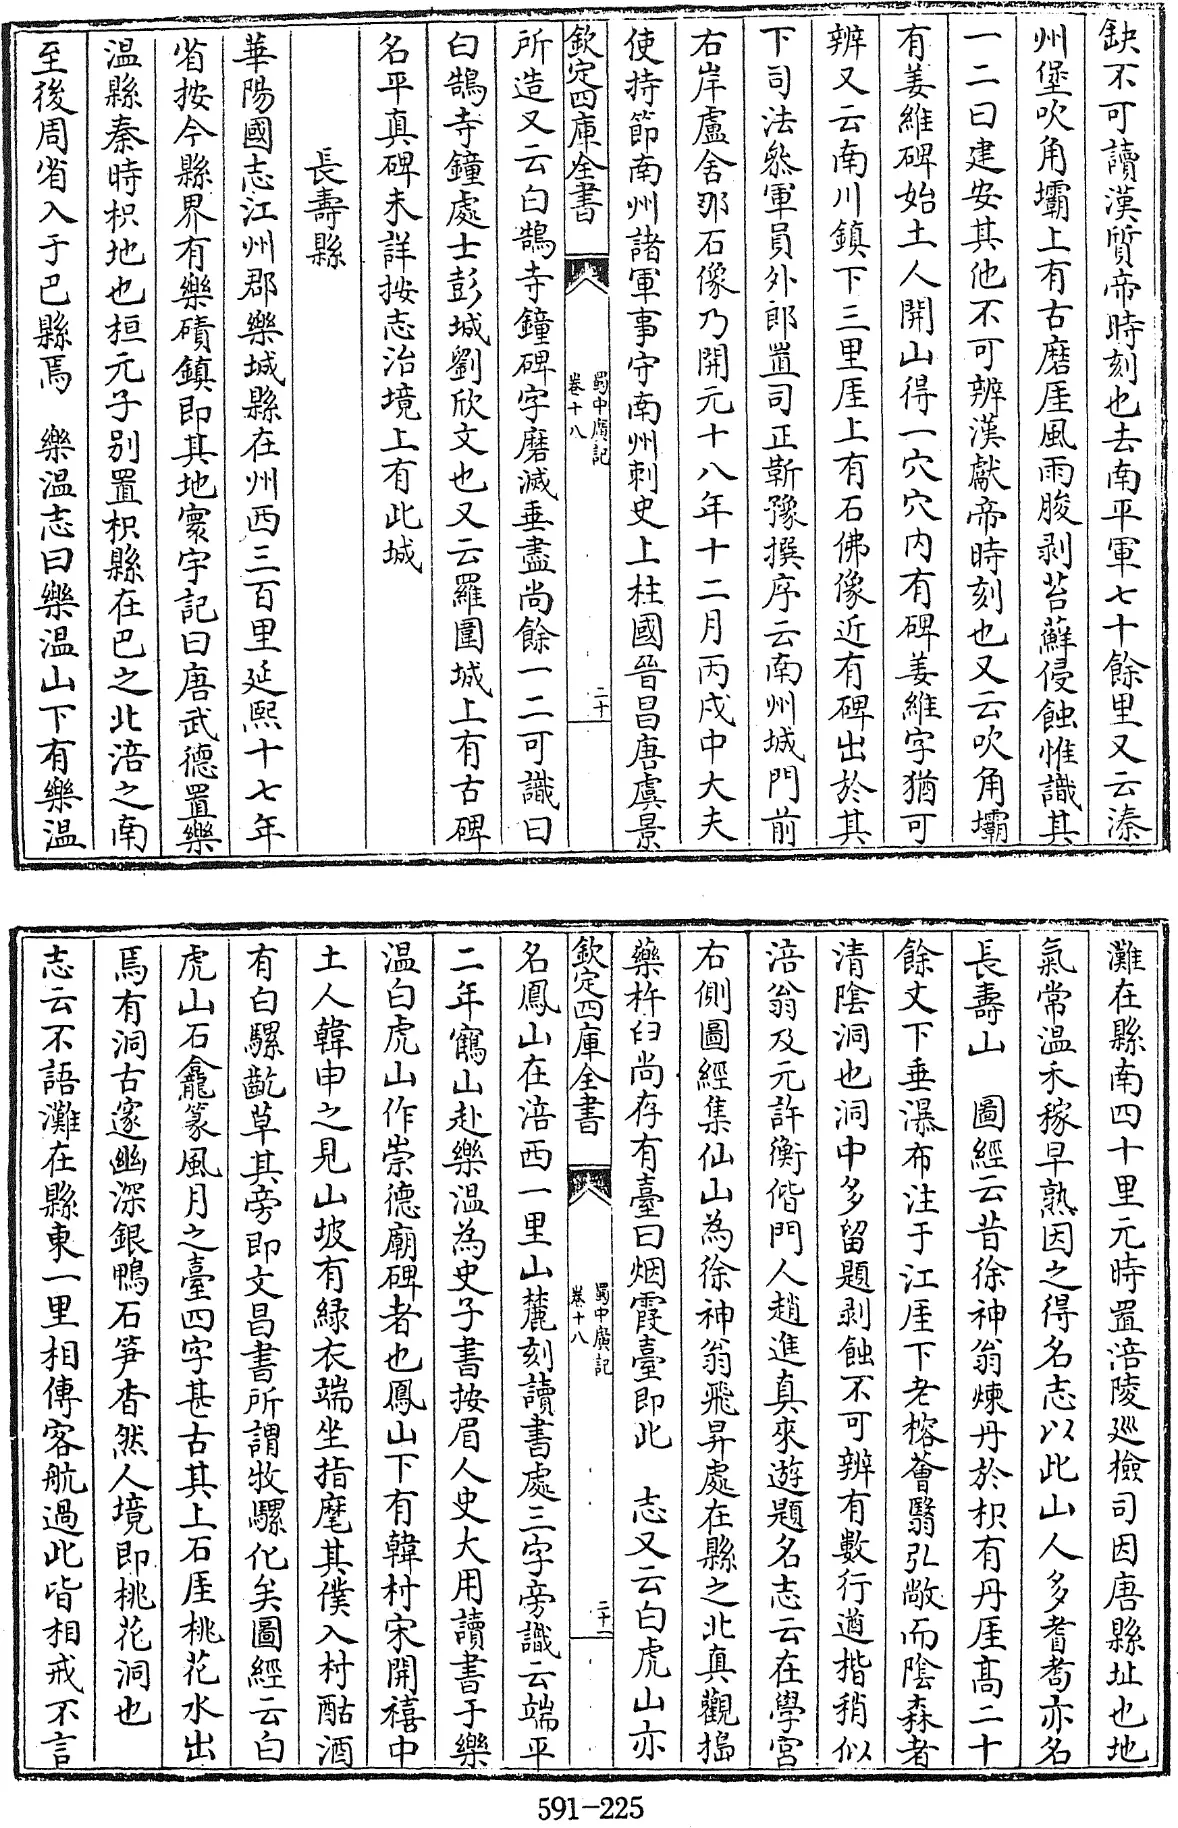 缺不可讀漢質帝時刻也去南平軍七十餘里又云溱
州堡吹角壩上有古磨厓風雨朘剥苔蘚侵蝕惟識其
一二曰建安其他不可辨漢獻帝時刻也又云吹角壩
有姜維碑始土人開山得一穴穴内有碑姜維字猶可
辨又云南川鎮下三里厓上有石佛像近有碑出於其
下司法叅軍員外郎置司正靳豫撰序云南州城門前
右岸盧舍那石像乃開元十八年十二月丙戌中大夫
使持節南州諸軍事守南州刺史上柱國晉昌唐虞景
欽定四庫全書
蜀中廣記
卷十八
二十
所造又云白鵲寺鐘碑字磨滅垂盡尚餘一二可識曰
白鵲寺鐘處士彭城劉欣文也又云羅圍城上有古碑
名平真碑未詳按志治境上有此城
長壽縣
華陽國志江州郡樂城縣在州西三百里延熙十七年
省按今縣界有樂磧鎮即其地寰宇記曰唐武德置樂
温縣秦時枳地也桓元子别置枳縣在巴之北涪之南
至後周省入于巴縣焉　樂温志曰樂温山下有樂温
灘在縣南四十里元時置涪陵廵檢司因唐縣址也地
氣常温禾稼早熟因之得名志以此山人多耆耉亦名
長壽山　圖經云昔徐神翁煉丹於枳有丹厓高二十
餘丈下垂瀑布注于江厓下老榕薈翳弘敞而陰森者
清陰洞也洞中多留題剥蝕不可辨有數行遒楷稍似
涪翁及元許衡偕門人趙進真來遊題名志云在學宫
右側圖經集仙山為徐神翁飛昇處在縣之北真觀搗
藥杵臼尚存有臺曰烟霞臺即此　志又云白虎山亦
欽定四庫全書
蜀中廣記
卷十八
二十一
名鳳山在涪西一里山麓刻讀書處三字旁識云端平
二年鶴山赴樂温為史子書按眉人史大用讀書于樂
温白虎山作崇德廟碑者也鳳山下有韓村宋開禧中
土人韓申之見山坡有緑衣端坐指麾其僕入村酤酒
有白騾齕草其旁即文昌書所謂牧騾化矣圖經云白
虎山石龕篆風月之臺四字甚古其上石厓桃花水出
焉有洞古邃幽深銀鴨石笋杳然人境即桃花洞也
志云不語灘在縣東一里相傳客航過此皆相戒不言
591-225